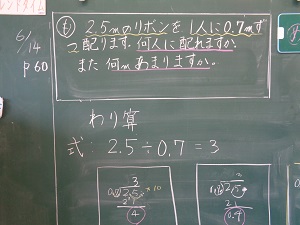 6/14
p60
も 2.5mのリボンを1人に0.7mず
つ配ります。何人に配れますか。
また何mあまりますか。
わり算
式: 2.5÷0.7=3
3
0.7)2.5
21
4
×10
3
0.7)2.5
21
0.4